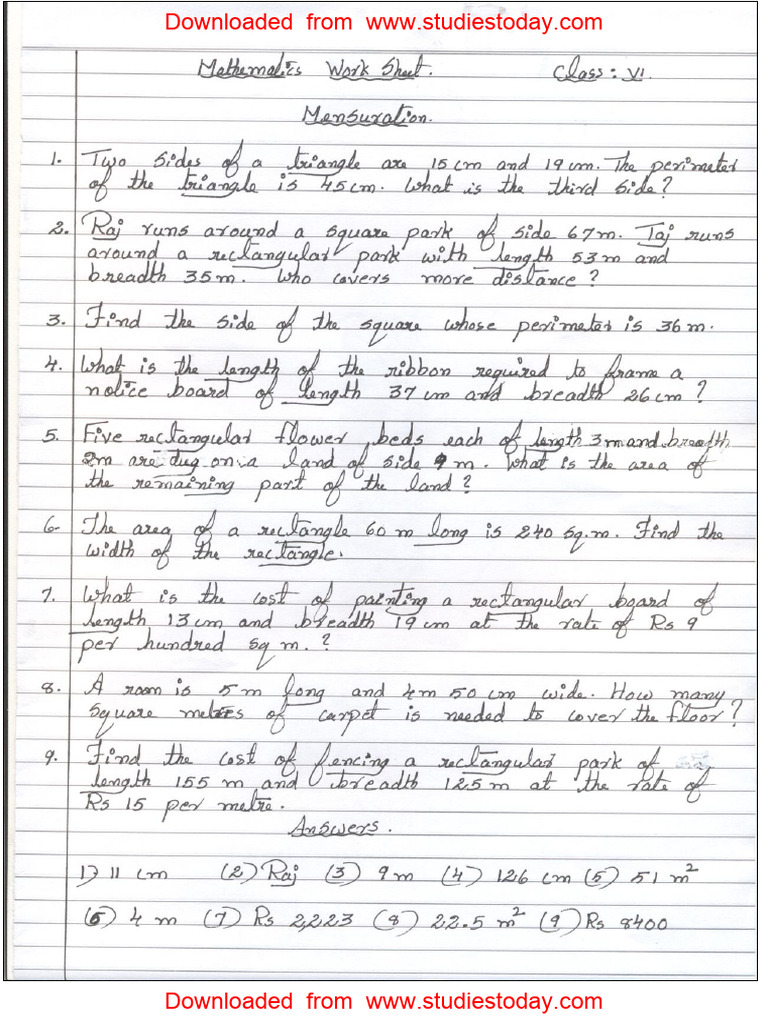 Downloaded from www.studiestoday.com
Mathematics Work Sheet. Class: VI.
Mensuration.
1. Two sides of a triangle are 15 cm and 19 cm. The perimeter
of the triangle is 45cm. What is the third side?
2. Raj runs around a square park of side 67 m. Taj runs
around a rectangular park with length 53 m and
breadth 35 m. Who covers more distance?
3. Find the side of the square whose perimeter is 36 m.
4. What is the length of the ribbon required to frame a
notice board of length 37 cm and breadth 26 cm?
5. Five rectangular flower beds each of length 3 m and breadth
2m are dug on a land of side 9 m. What is the area of
the remaining part of the land?
6. The area of a rectangle 60 m long is 240 sq.m. Find the
width of the rectangle.
7. What is the cost of painting a rectangular board of
length 13 cm and breadth 19 cm at the rate of Rs 9
per hundred sq m.?
8. A room is 5 m long and 4m 50 cm wide. How many
square metres of carpet is needed to cover the floor?
9. Find the cost of fencing a rectangular park of
length 155 m and breadth 125 m at the rate of
Rs 15 per metre.
Answers.
1) 11 cm (2) Raj (3) 9 m (4) 126 cm (5) 51 m²
(6) 4 m (7) Rs 2,223 (8) 22.5 m² (9) Rs 8400
Downloaded from www.studiestoday.com